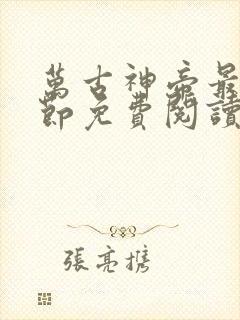 萬古神帝最
節免費閱讀
張亮攜